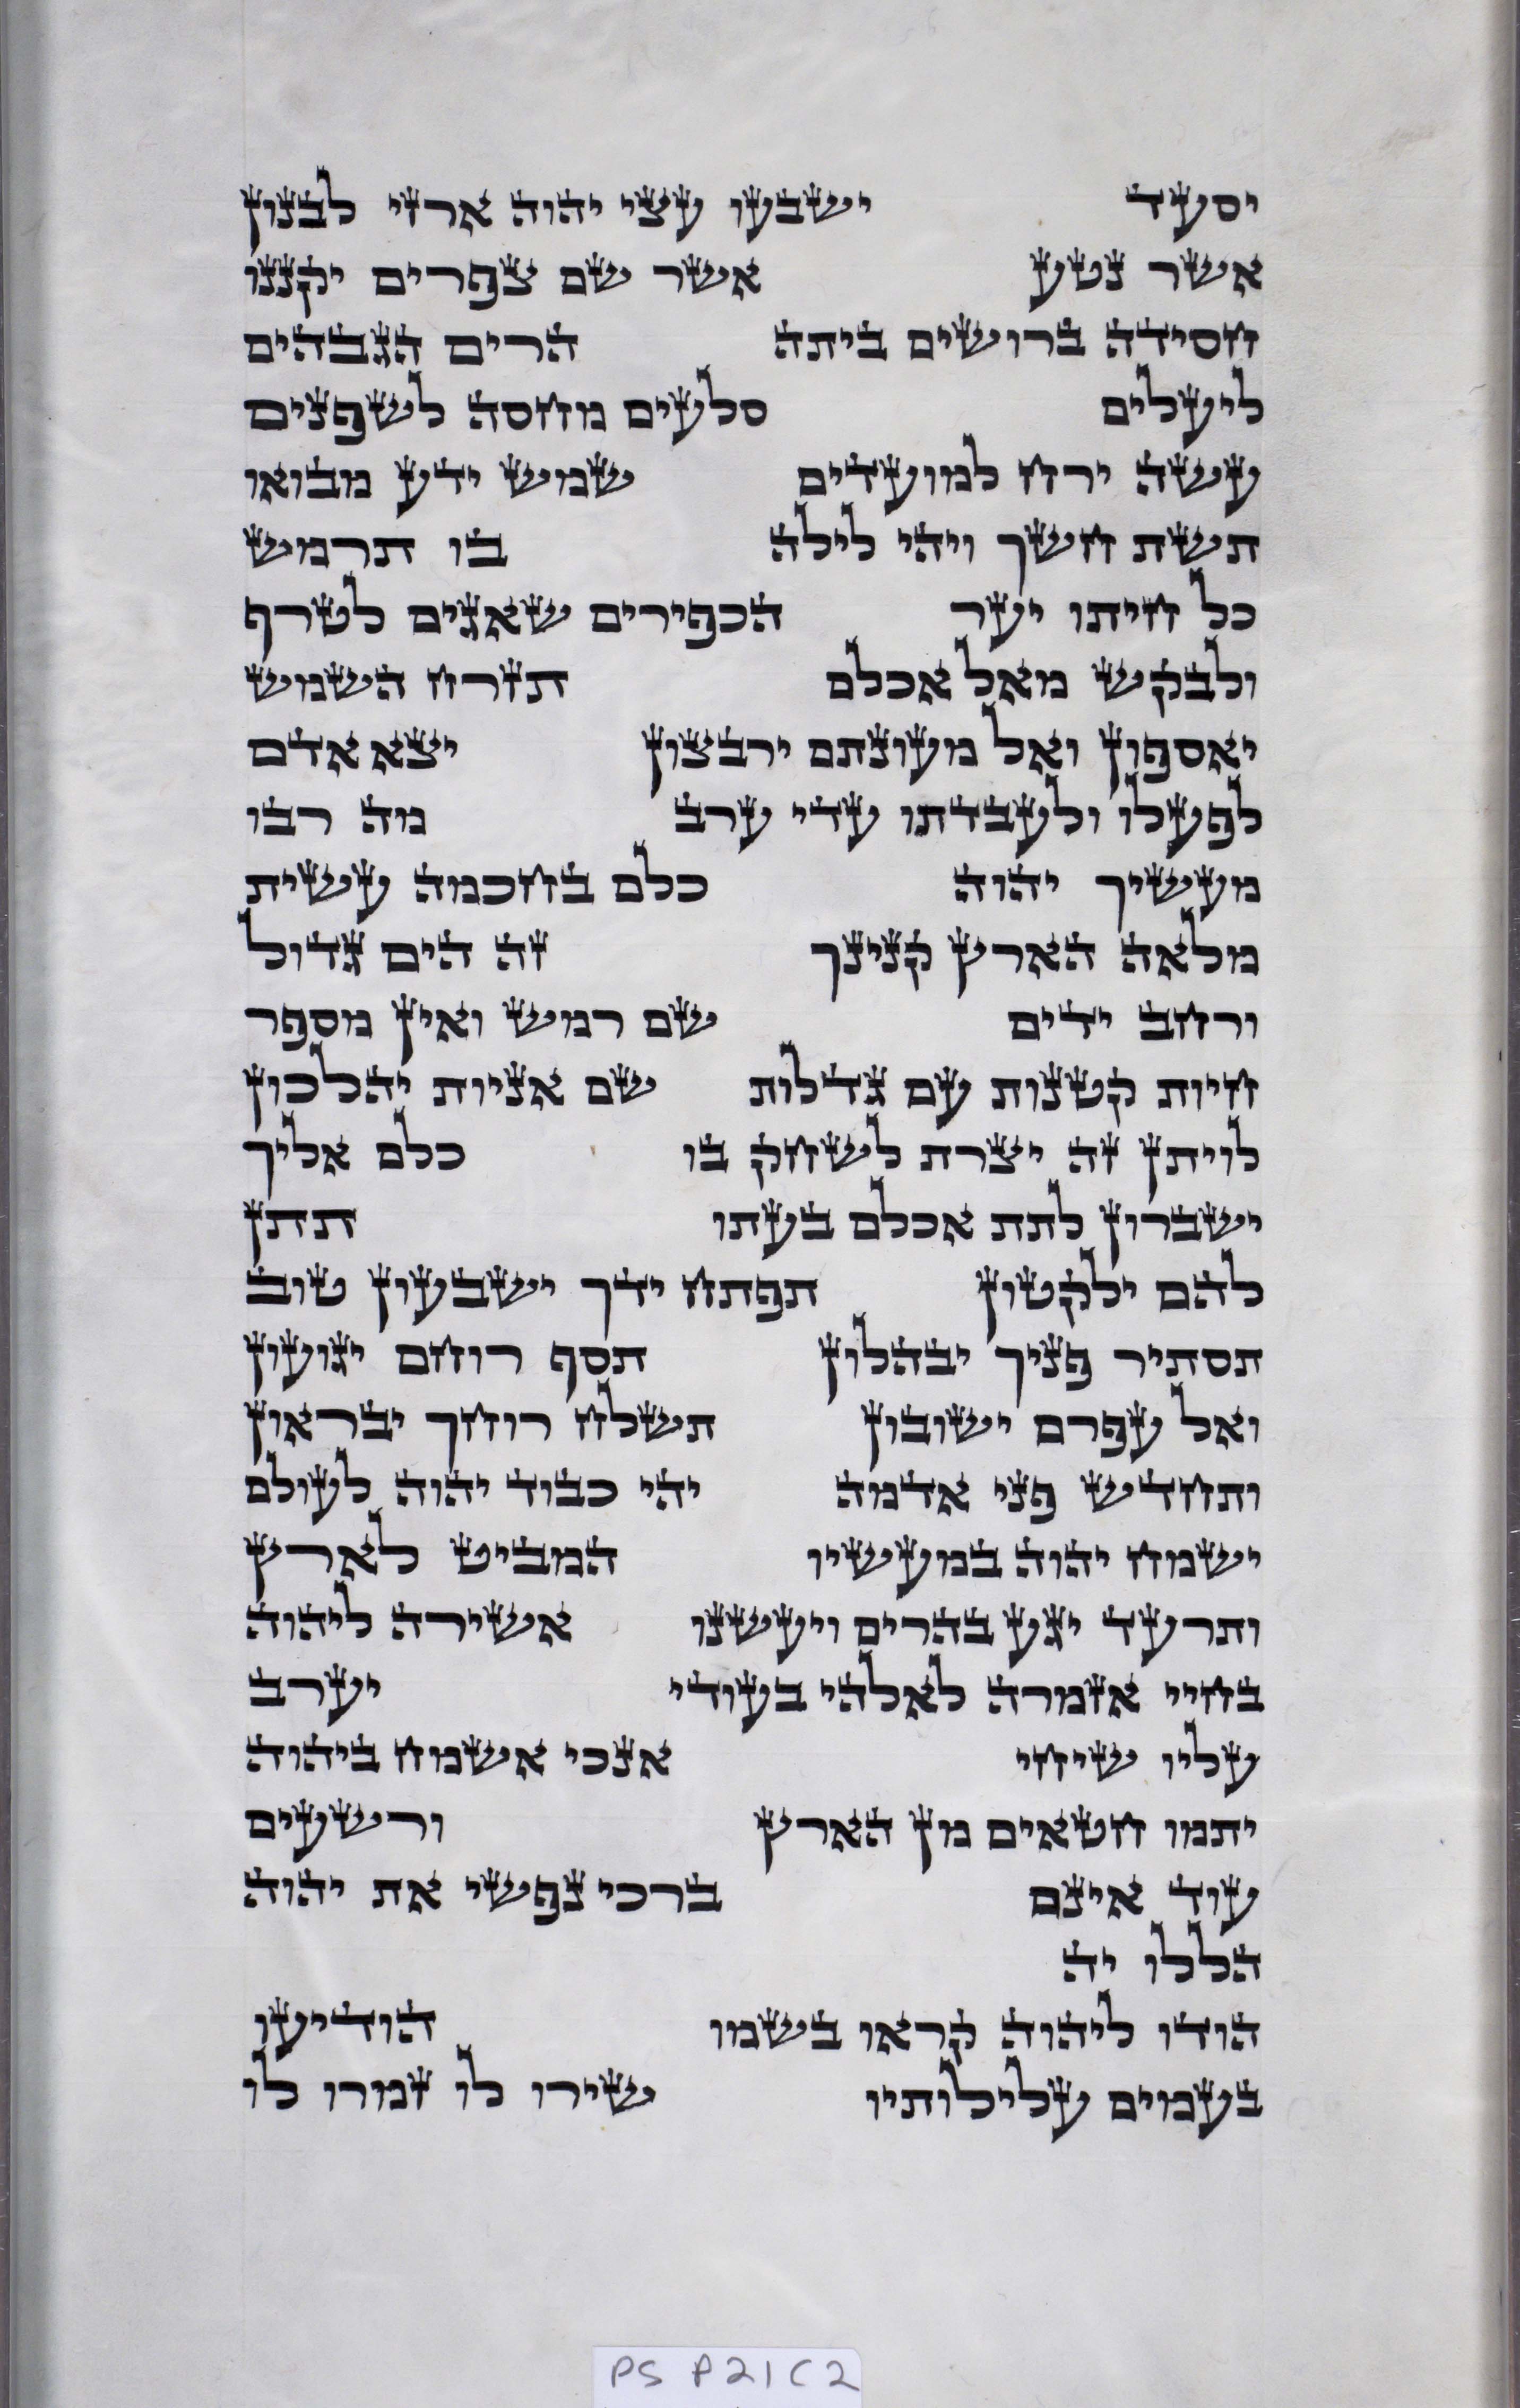 יסעד ישבעו עצי יהוה ארזי לבנון
אשר נטע אשר שם צפרים יקננו
חסידה ברושים ביתה הרים הגבהים
ליעלים סלעים מחסה לשפנים
עשה ירח למועדים שמש ידע מבואו
תשת חשך ויהי לילה בו תרמש
כל חיתו יער הכפירים שאגים לטרף
ולבקש מאל אכלם תזרח השמש
יאספון ואל מעונתם ירבצון יצא אדם
לפעלו ולעבדתו עדי ערב מה רבו
מעשיך יהוה כלם בחכמה עשית
מלאה הארץ קנינך זה הים גדול
ורחב ידים שם רמש ואין מספר
חיות קטנות עם גדלות שם אניות יהלכון
לויתן זה יצרת לשחק בו כלם אליך
ישברון לתת אכלם בעתו תתן
להם ילקטון תפתח ידך ישבעון טוב
תסתיר פניך יבהלון תסף רוחם יגועון
ואל עפרם ישובון תשלח רוחך יבראון
ותחדש פני אדמה יהי כבוד יהוה לעולם
ישמח יהוה במעשיו המביט לארץ
ותרעד יגע בהרים ויעשנו אשירה ליהוה
בחיי אזמרה לאלהי בעודי יערב
עליו שיחי אנכי אשמח ביהוה
יתמו חטאים מן הארץ ורשעים
עוד אינם ברכי נפשי את יהוה
הללו יה
הודו ליהוה קראו בשמו הודיעו
בעמים עלילותיו שירו לו זמרו לו
PS P21C2